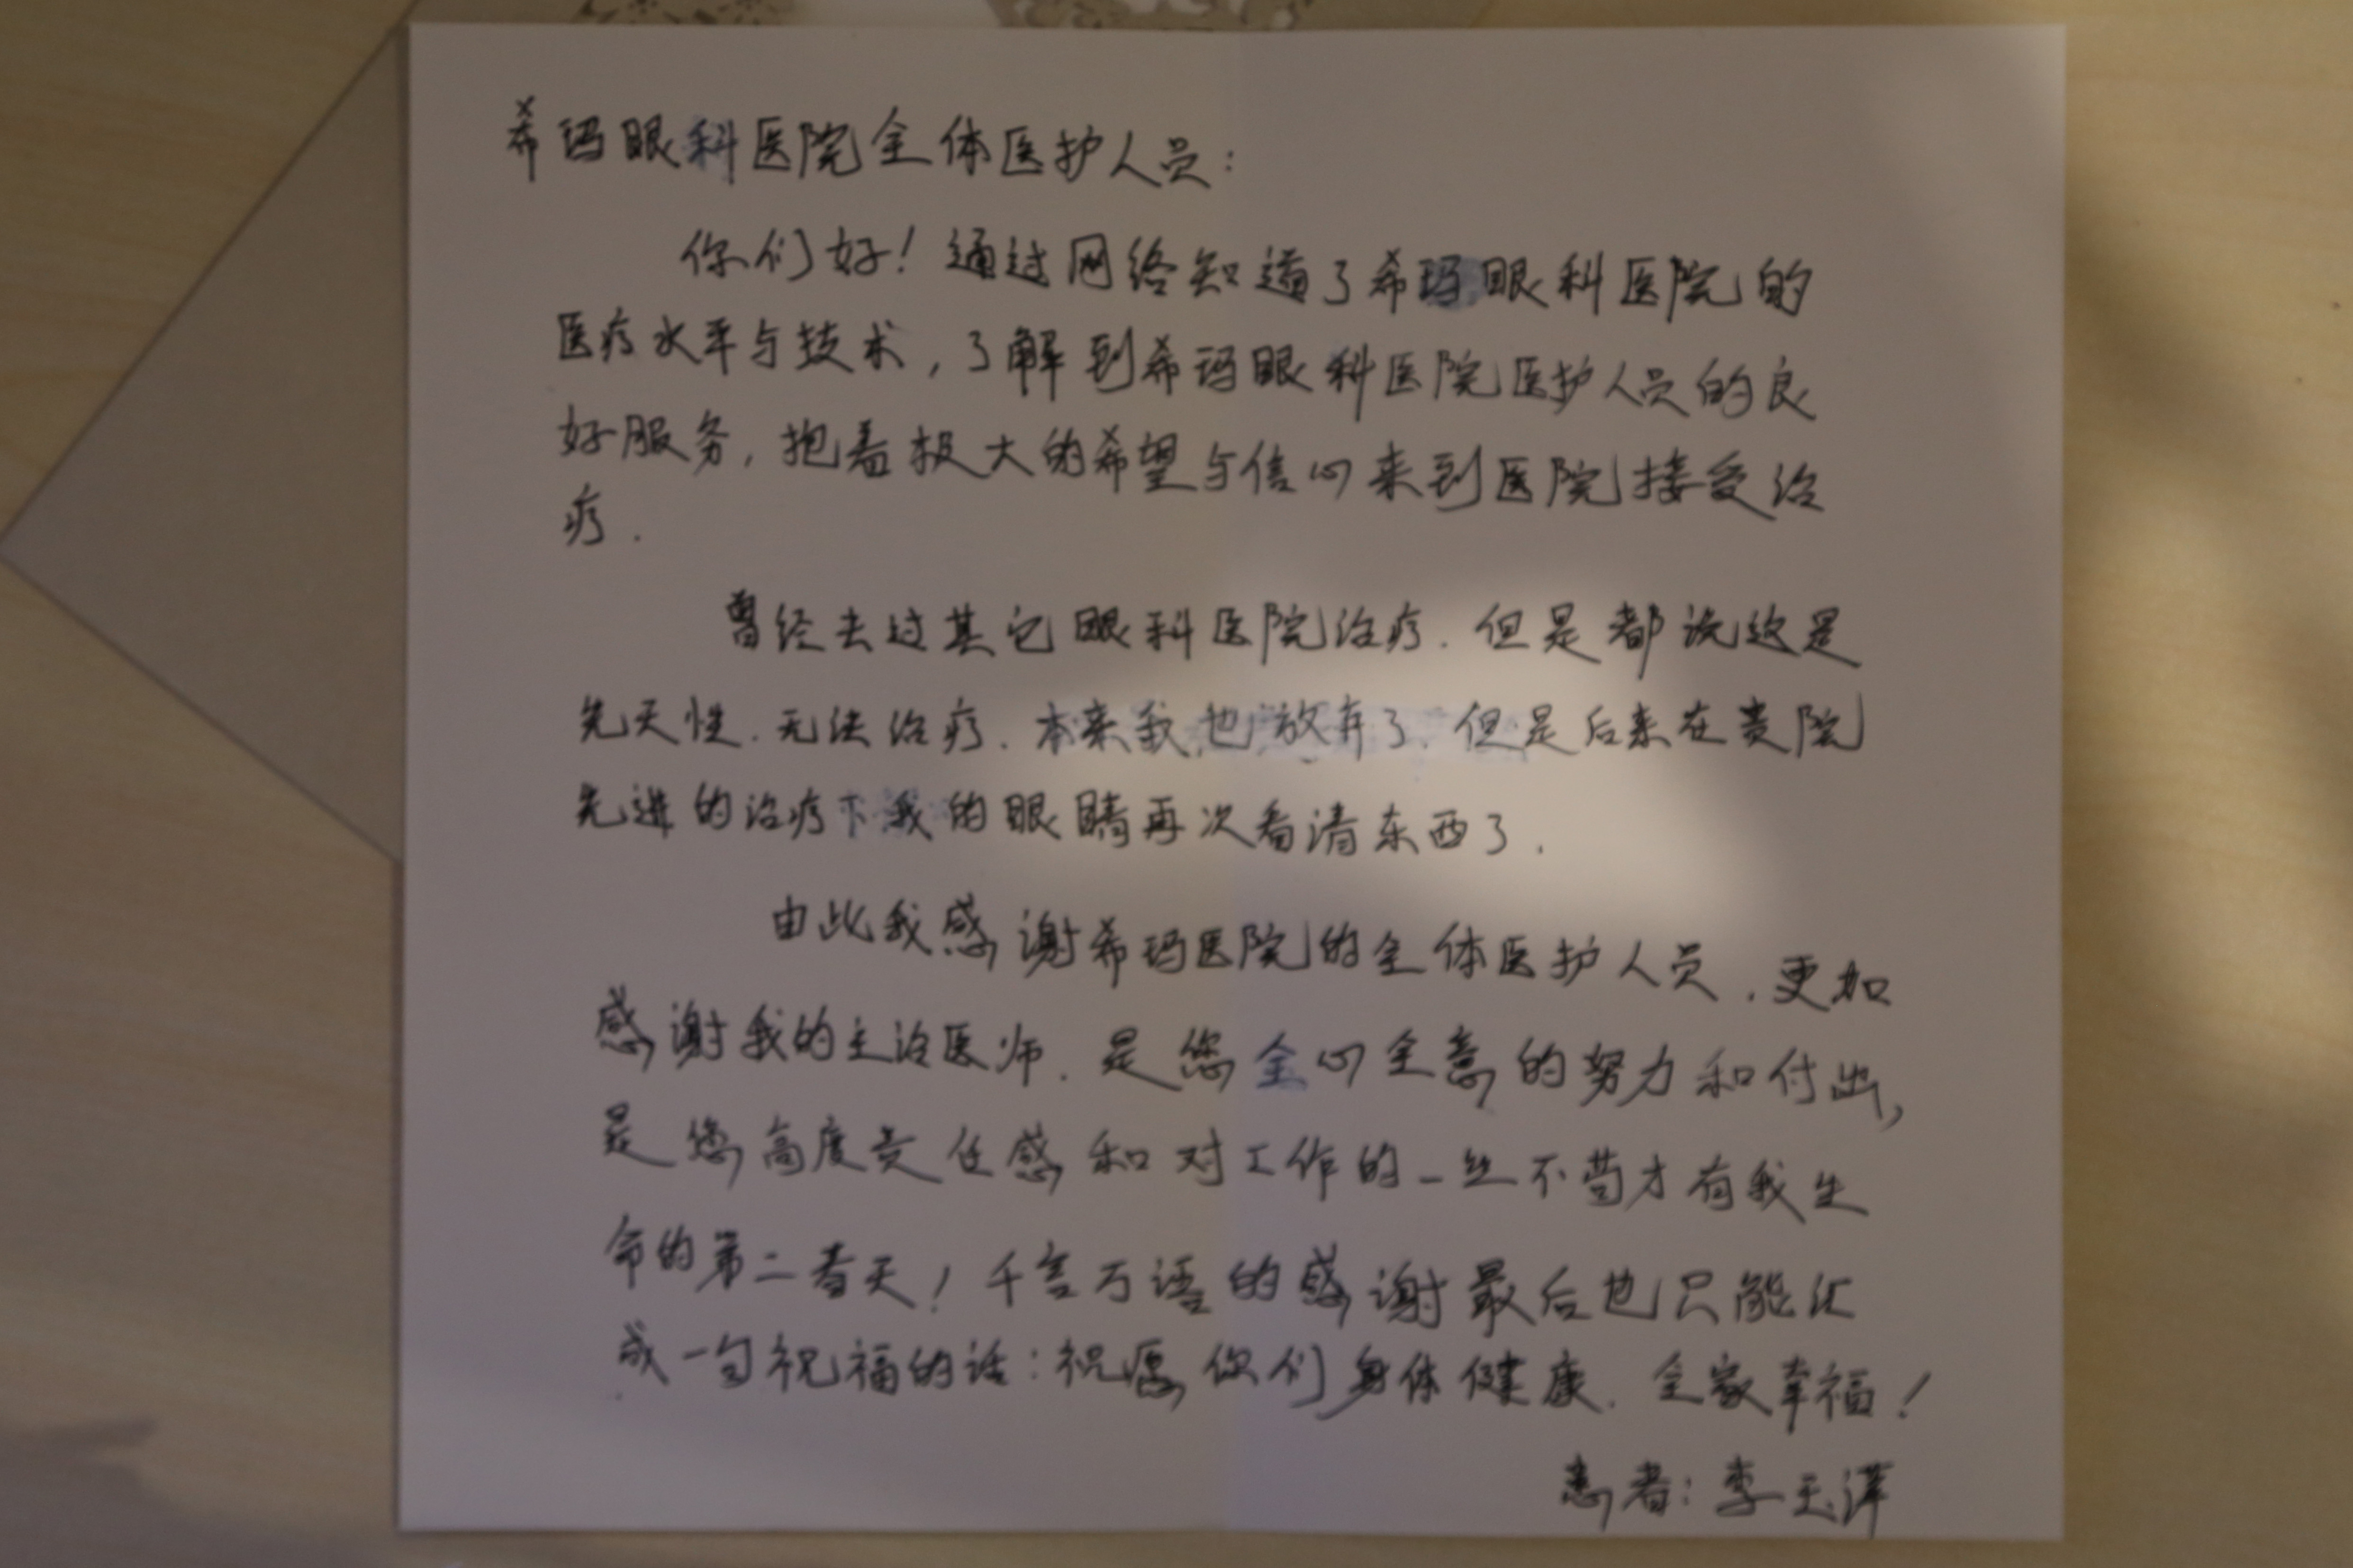 希玛眼科医院全体医护人员:
你们好！通过网络知道了希玛眼科医院的
医疗水平与技术,了解到希玛眼科医院医护人员的良
好服务,抱着极大的希望与信心来到医院接受治
疗.
曾经去过其它眼科医院治疗.但是都说这是
先天性.无法治疗.本来我也放弃了.但是后来在贵院
先进的治疗下我的眼睛再次看清东西了.
由此我感谢希玛医院的全体医护人员,更加
感谢我的主治医师.是您全心全意的努力和付出,
是您高度责任感和对工作的一丝不苟才有我生
命的第二春天！千言万语的感谢最后也只能汇
成一句祝福的话:祝愿你们身体健康.全家幸福！
患者:李玉萍